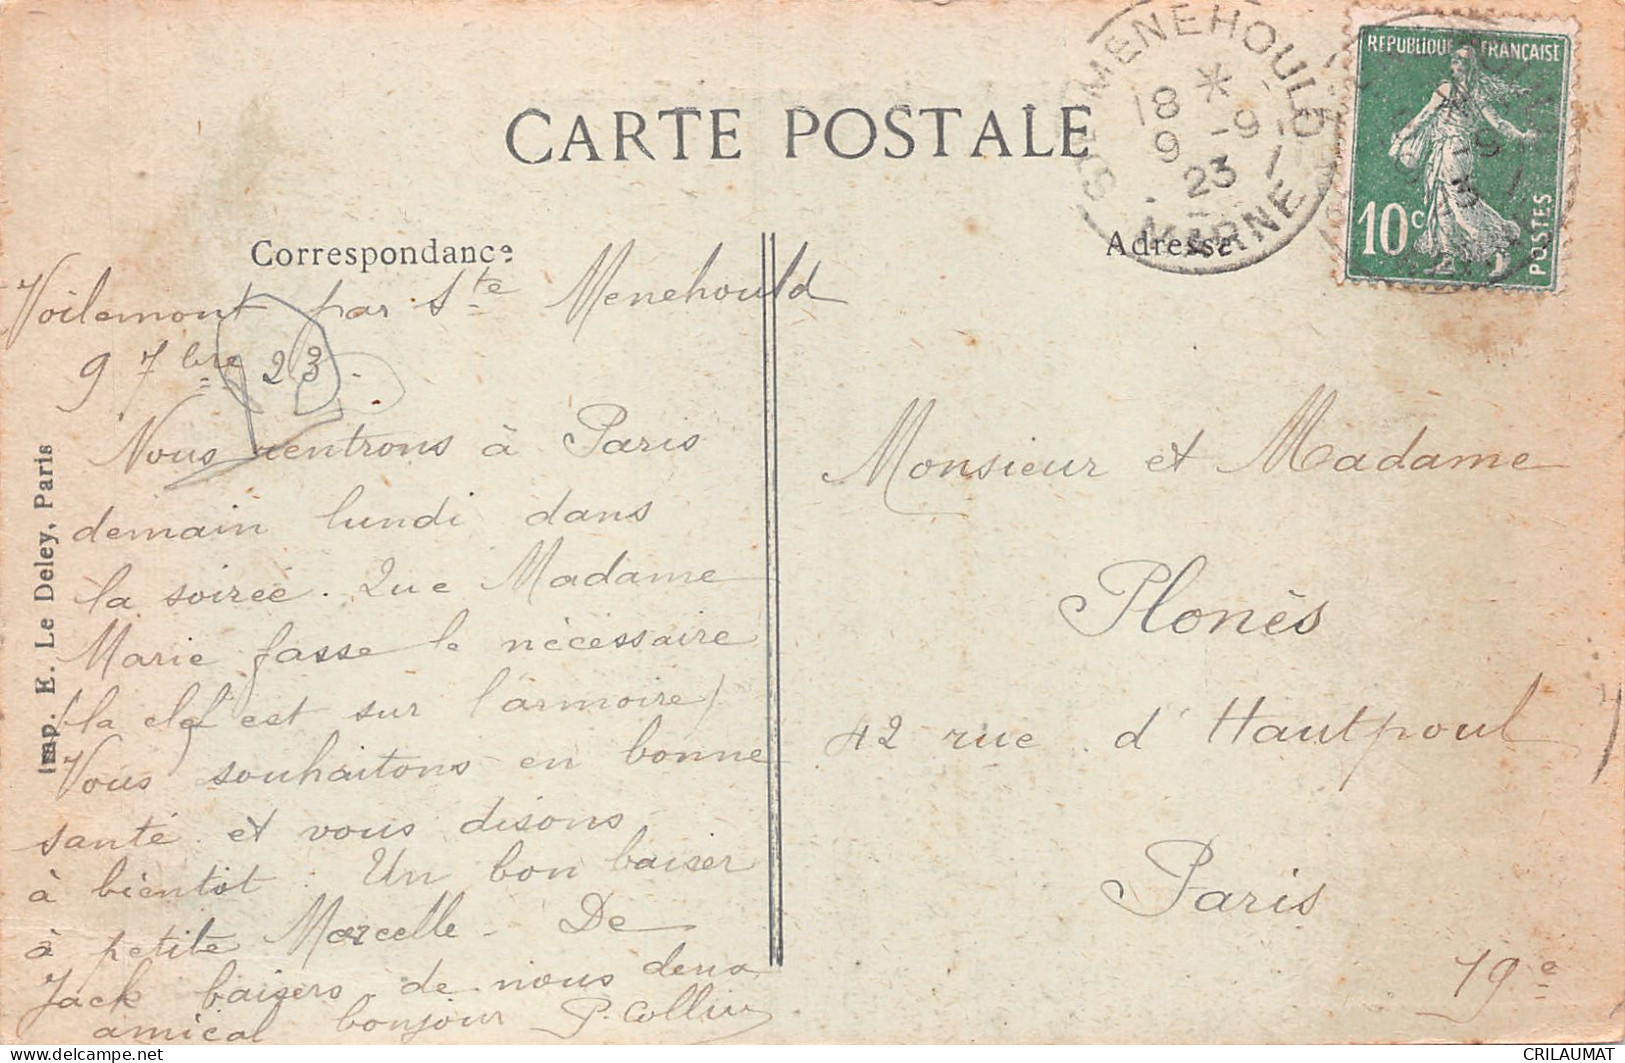 CARTE POSTALE
Correspondance
Adresse
STE MENEHOULD
18 * -9
9 23
MARNE
REPUBLIQUE FRANÇAISE
10c
POSTES
Voilemont par Ste Menehould
9 7bre 23.
Nous rentrons à Paris
demain lundi dans
la soirée. Que Madame
Marie fasse le nécessaire
(la clef est sur l'armoire)
Vous souhaitons en bonne
santé et vous disons
à bientôt. Un bon baiser
à petite Marcelle. De
Jack baisers de nous deux
amical bonjour P. Collin
Monsieur et Madame
Plonès
42 rue d'Hautpoul
Paris
19e
Imp. E. Le Deley, Paris
CRILAUMAT